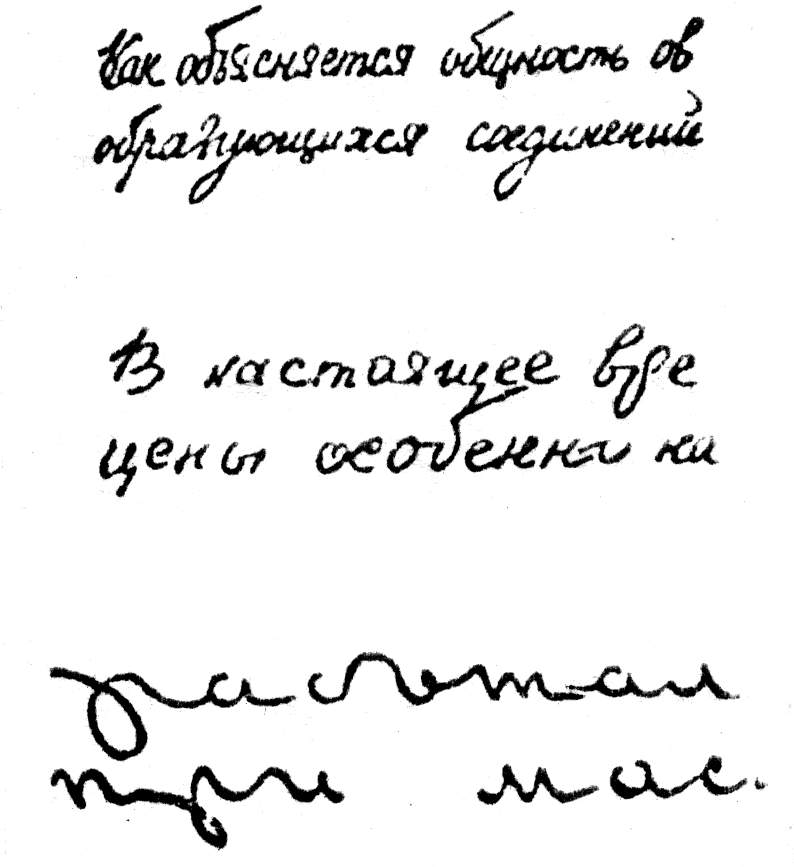 Как объясняется общность св
образующихся соединений
В настоящее вре
цены особенно на
работал
три мас.